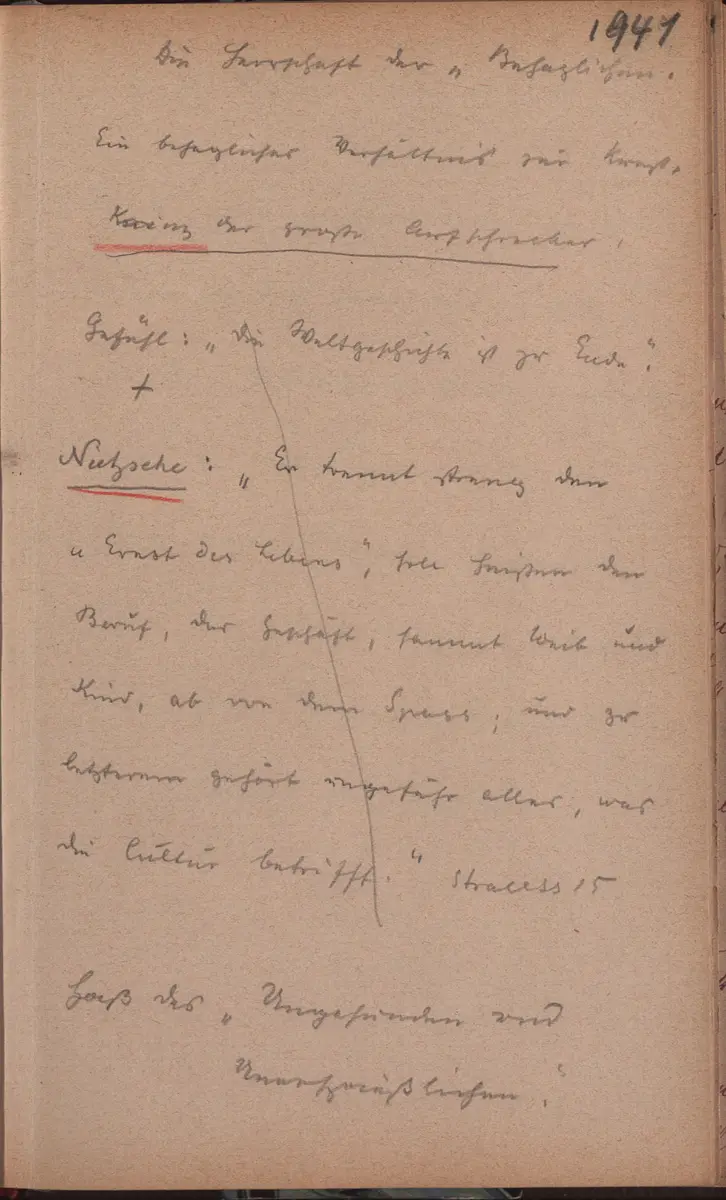 1941
Die Herrschaft der „Behaglichen.
Ein behagliches Verhältnis zur Kunst.
der große Aufschrecker.
Gefühl: „Die Weltgeschichte ist zu Ende“.
+
Nietzsche: „Er trennt streng den
„Ernst des Lebens“, soll heißen den
Beruf, das Geschäft, sammt Weib und
Kind, ab von dem Spass; und zu
letzterem gehört ungefähr alles, was
die Cultur betrifft.“ Strauss 15
Haß des „Ungesunden und
Unersprießlichen“.